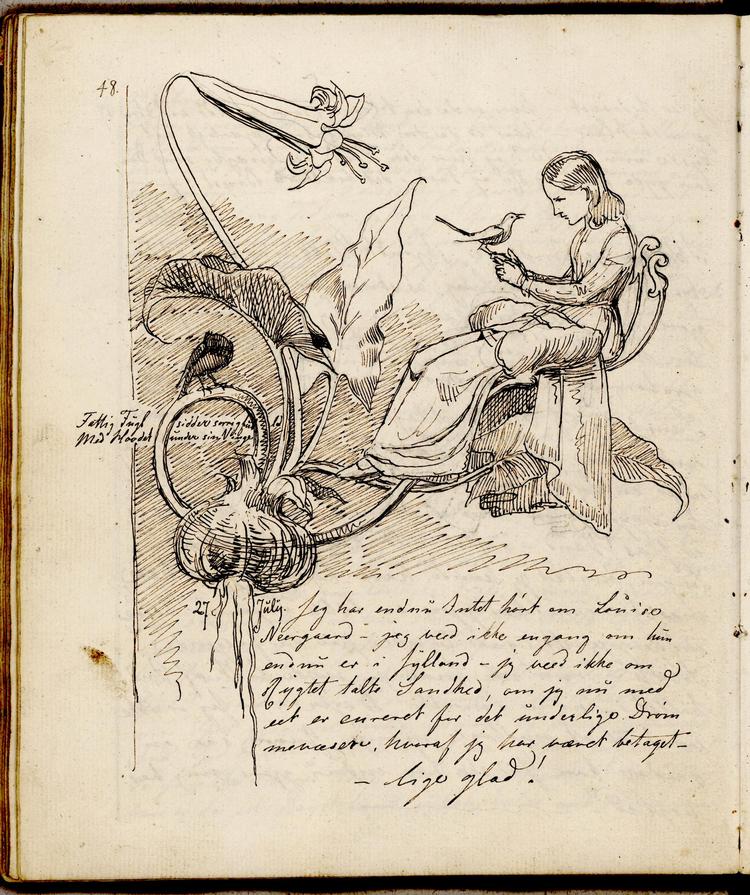 48.
Fattig Fugl sidder sørrigfuld
Med Hovdet under sin Vinge
27 July. Jeg har endnu Intet hört om Louise
Neergaard – jeg veed ikke engang om hun
endnu er i Jylland – jeg veed ikke om
Rygtet talte Sandhed, om jeg nu med
eet er cureret for det underlige Dröm
mevæsen, hvoraf jeg har været betaget
– lige glad!